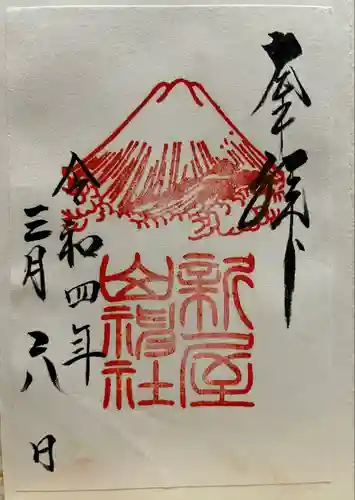 奉拝
新屋
山神社
令和四年
三月二八日